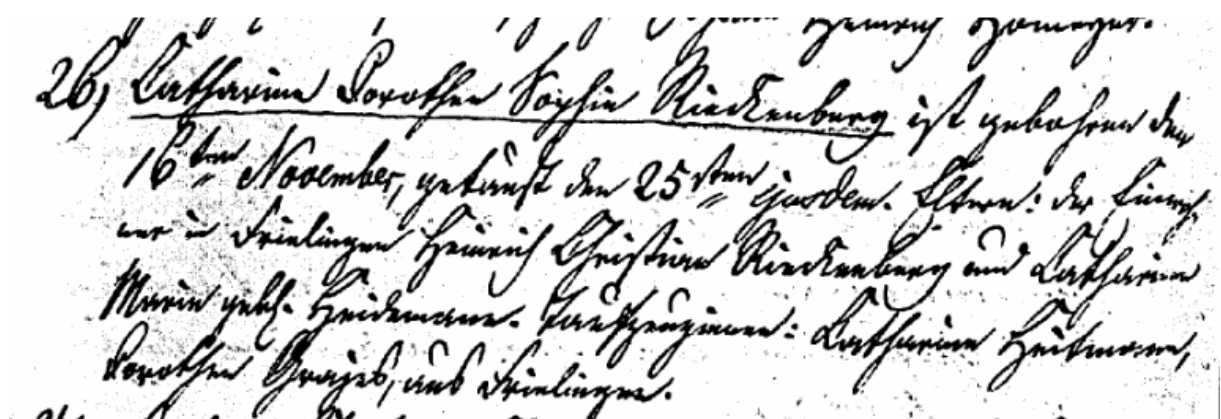 Heinrich Homeyer.
26, Catharine Dorothee Sophie Rieckenberg ist gebohren den
16ten November, getauft den 25sten ejusdem. Eltern: der Einwoh-
ner in Frielingen Heinrich Christian Rieckenberg und Catharine
Marie gebh. Heidemann. Taufzeuginnen: Catharine Heitmann,
Dorothee Grages, aus Frielingen.